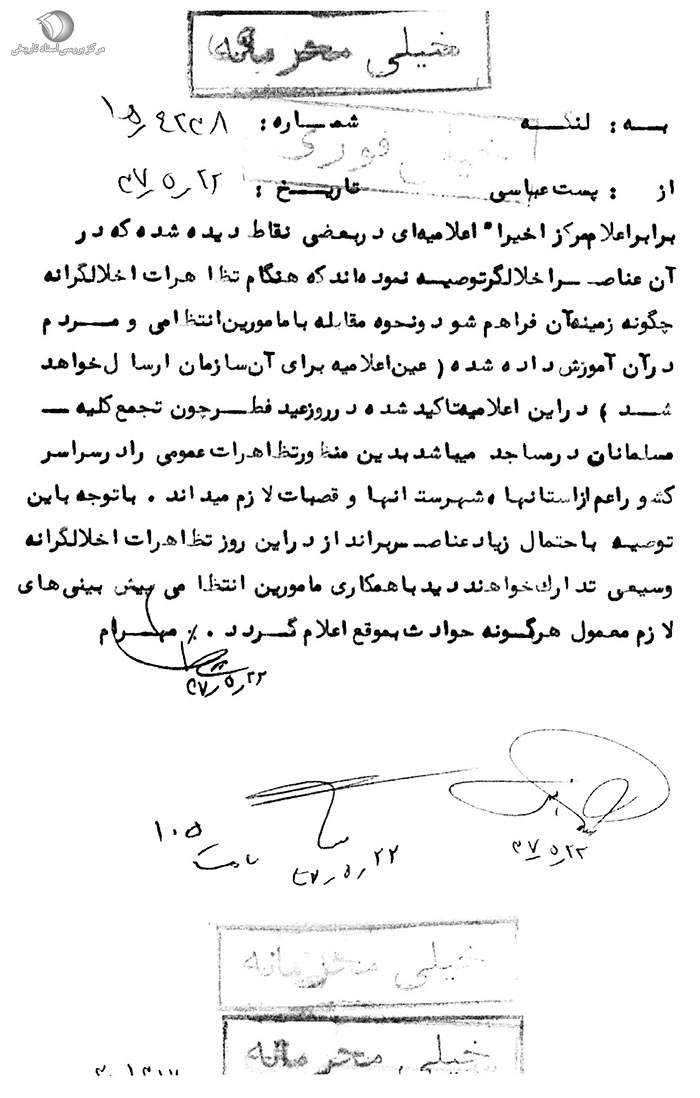 مرکز بررسی اسناد تاریخی
خیلی محرمانه
به : لنگه شماره : ۱۵٫۴۲۳۸
خیلی فوری
از : پست عباسی تاریخ : ۳۷٫۵٫۲۲
برابر اعلام مرکز اخیرا" اعلامیه‌ای در بعضی نقاط دیده شده که در
آن عناصر اخلالگر توصیه نموده‌اند که هنگام تظاهرات اخلالگرانه
چگونه زمینه‌آن فراهم شود و نحوه مقابله با مامورین انتظامی و مردم
در آن آموزش داده شده ( عین اعلامیه برای آن سازمان ارسال خواهد
شد ) در این اعلامیه تاکید شده در روز عید فطر چون تجمع کلیه —
مسلمانان در مساجد میباشد بدین منظور تظاهرات عمومی را در سراسر
کشور اعم از استانها ، شهرستانها و قصبات لازم میداند . با توجه باین
توصیه باحتمال زیاد عناصر براندازدر این روز تظاهرات اخلالگرانه
وسیعی تدارک خواهند دید با همکاری مامورین انتظامی پیش بینی‌های
لازم معمول هرگونه حوادث بموقع اعلام گردد . ٪ مهرام
۳۷٫۵٫۲۲
۱۰۵
ساعت
۳۷٫۵٫۲۲
۳۷٫۵٫۲۲
خیلی محرمانه
خیلی محرمانه